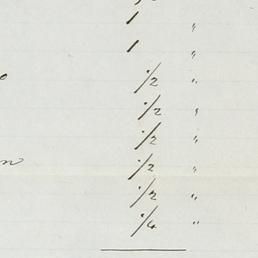 1 "
1 "
1/2 "
1/2 "
1/2 "
1/2 "
1/2 "
1/4 "